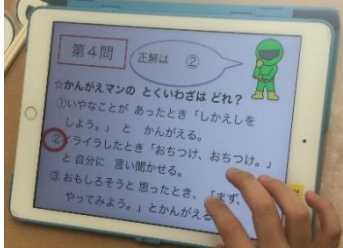 第4問
正解は ②
☆かんがえマンの とくいわざは どれ？
①いやなことが あったとき「しかえしを
しよう。」 と かんがえる。
②イライラしたとき「おちつけ、おちつけ。」
と 自分に 言い聞かせる。
③ おもしろそうと 思ったとき、「まず、
やってみよう。」とかんがえる